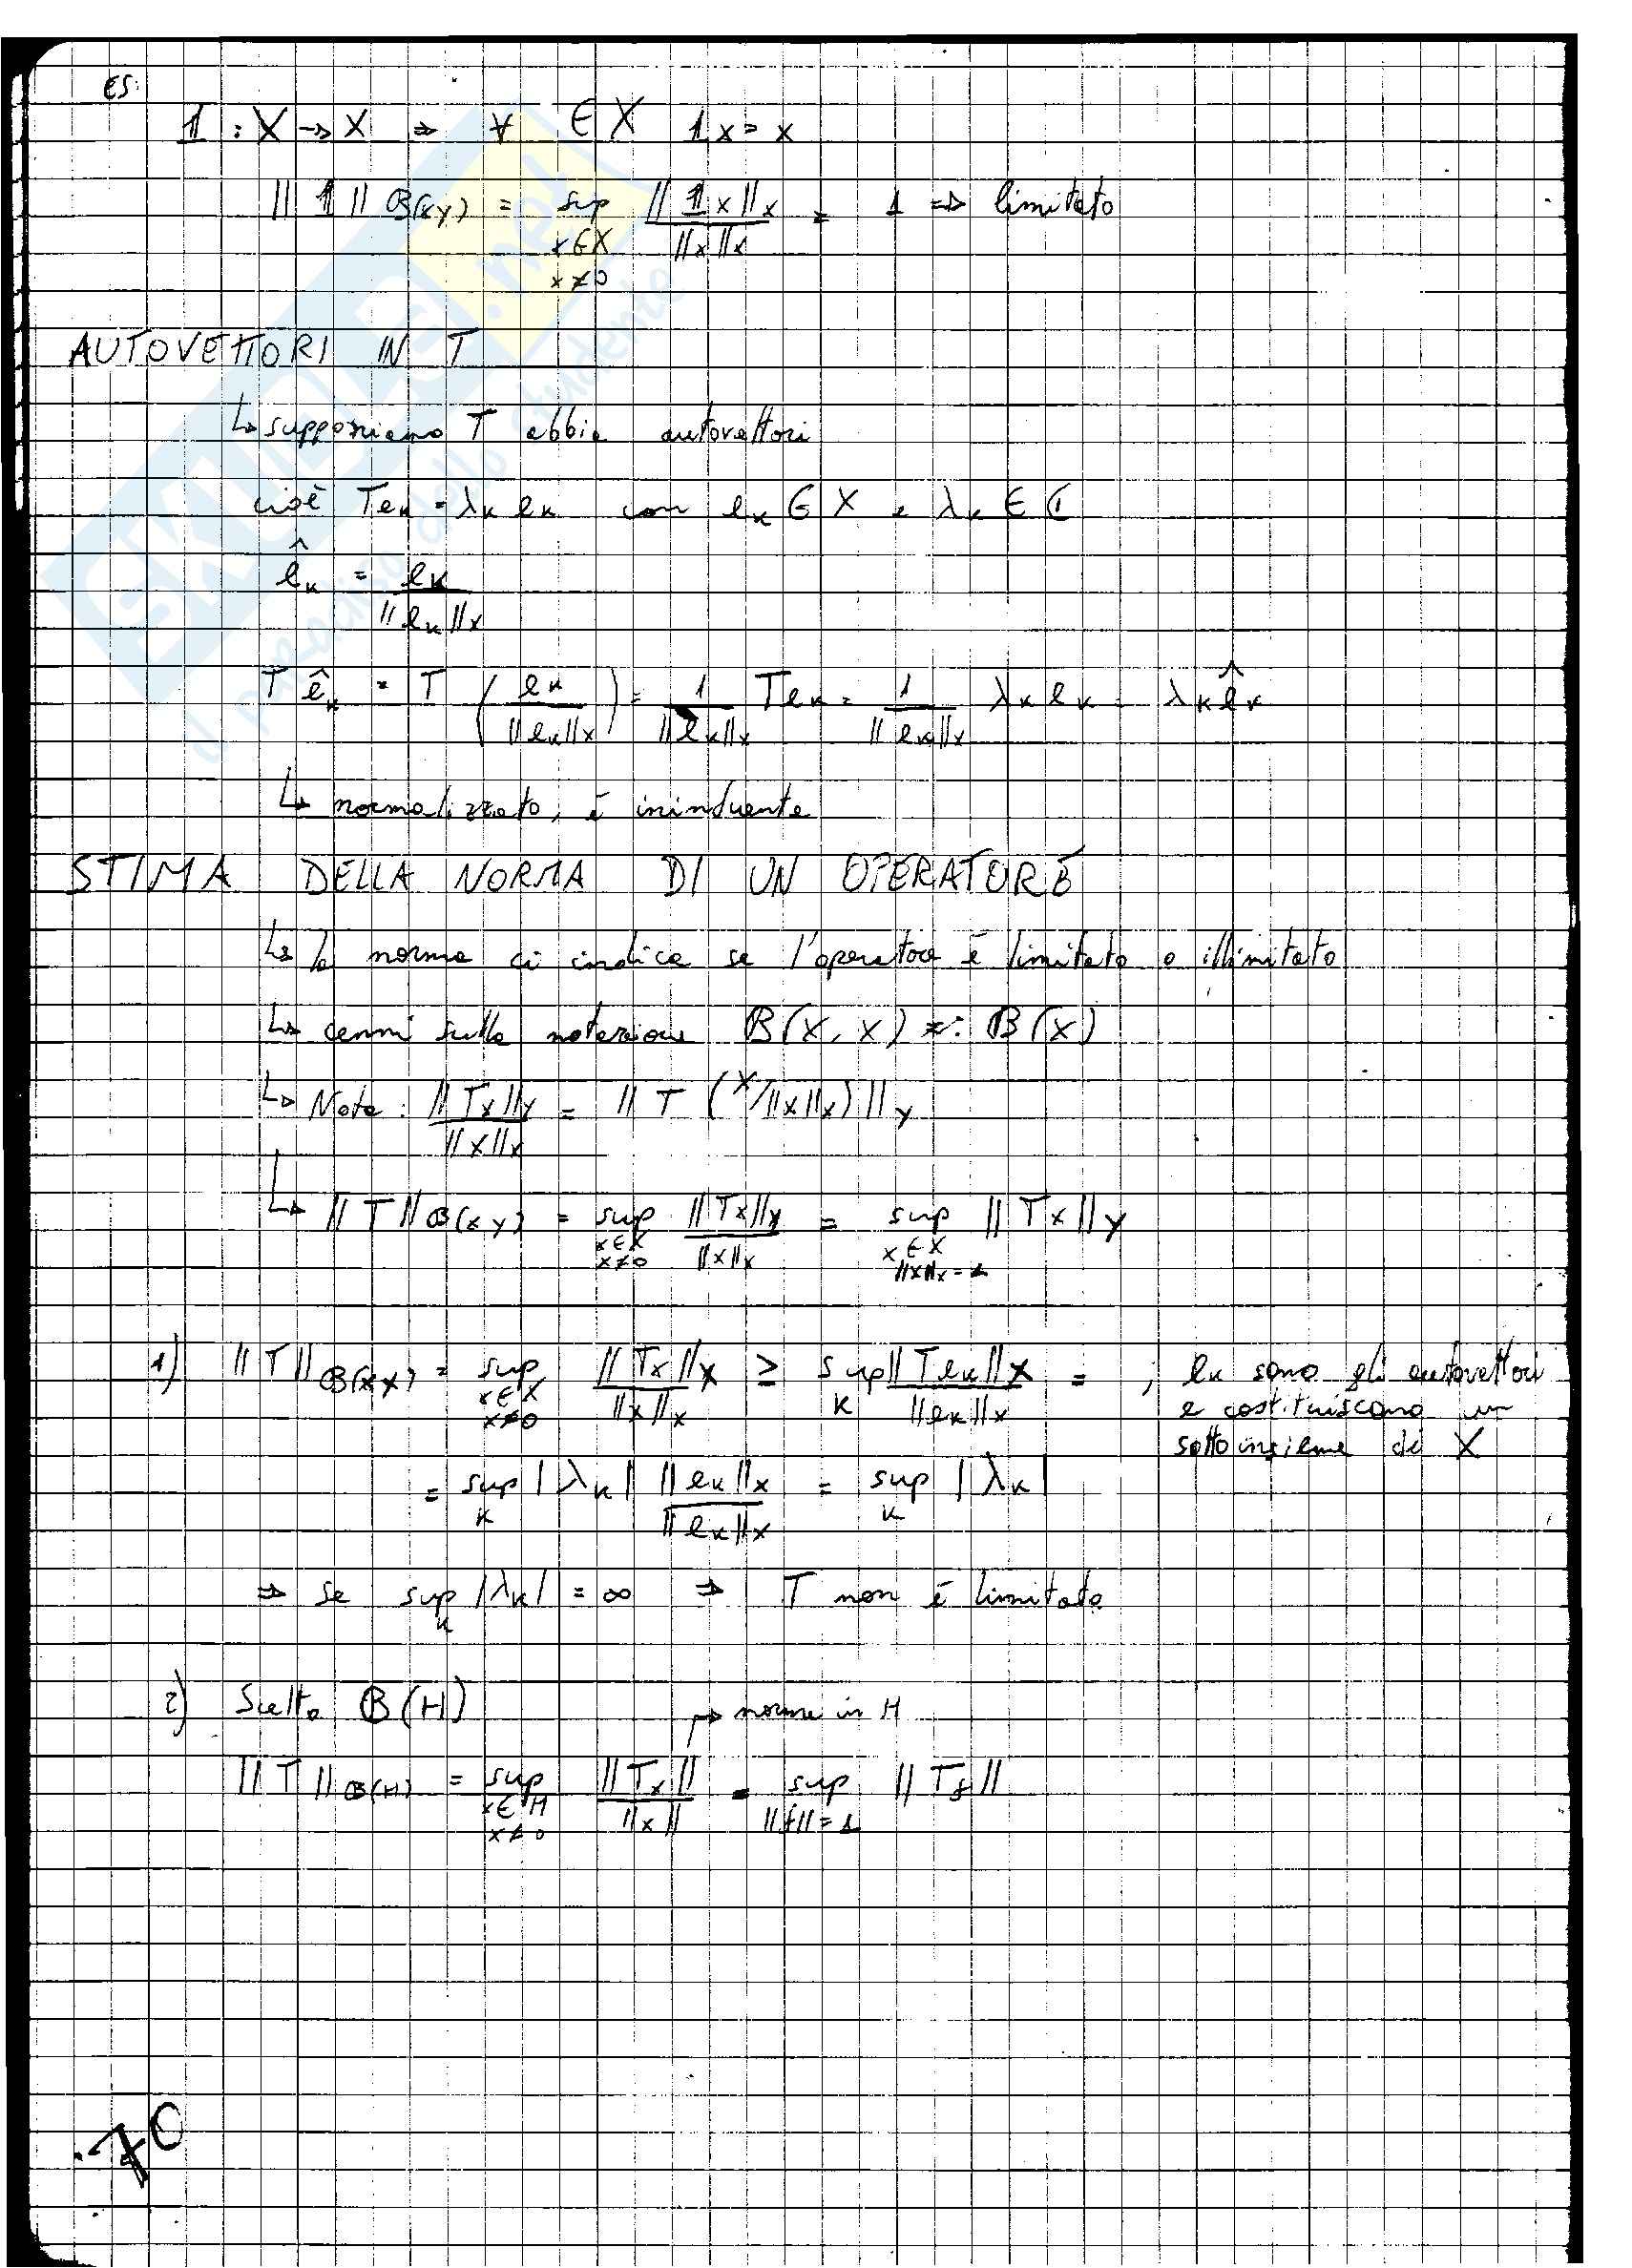 ES:
𝟙 : X → X ⇒ ∀ ∈ X 𝟙x = x
||𝟙||B(xy) = sup x∈X x≠0 ||𝟙x||x / ||x||x = 1 ⇒ limitato
AUTOVETTORI IN T
↳ supponiamo T abbia autovettori
cioè Tek = λk ek con ek ∈ X e λk ∈ ℂ
êk = ek / ||ek||x
T êk = T (ek / ||ek||x) = 1 / ||ek||x Tek = 1 / ||ek||x λk ek = λk êk
↳ normalizzato, è ininfluente
STIMA DELLA NORMA DI UN OPERATORE
↳ la norma ci indica se l'operatore è limitato o illimitato
↳ cenni sulla notazione B(X, X) =: B(X)
↳ Nota: ||Tx||y / ||x||x = ||T (x/||x||x)||y
↳ ||T||B(xy) = sup x∈X x≠0 ||Tx||y / ||x||x = sup x∈X ||x||x=1 ||Tx||y
1) ||T||B(xx) = sup x∈X x≠0 ||Tx||x / ||x||x ≥ sup k ||Tek||x / ||ek||x = ; ek sono gli autovettori
e costituiscono un
sottoinsieme di X
= sup k |λk| ||ek||x / ||ek||x = sup k |λk|
⇒ se sup k |λk| = ∞ ⇒ T non è limitato
2) Scelto B(H) ↱ norme in H
||T||B(H) = sup x∈H x≠0 ||Tx|| / ||x|| = sup ||f||=1 ||Tf||
70
SKUOLA.net
il paradiso dello studente